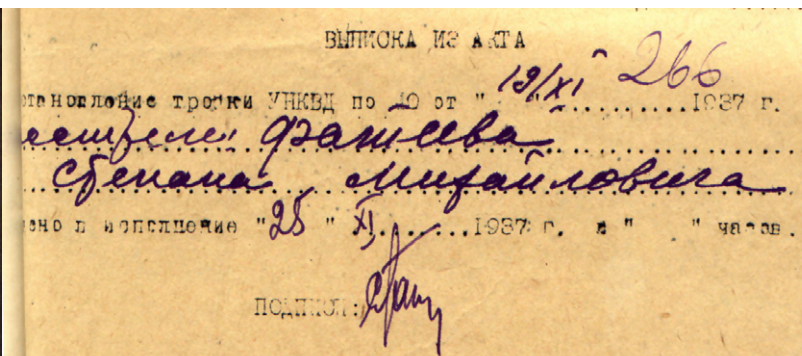 ВЫПИСКА ИЗ АКТА
266
становление тройки УНКВД по ЛО от "19/XI"..........1937 г.
Фатеева
Степана Михайловича
ено в исполнение "25" XI.......1937 г. в " " часов.
ПОДПИСЬ: